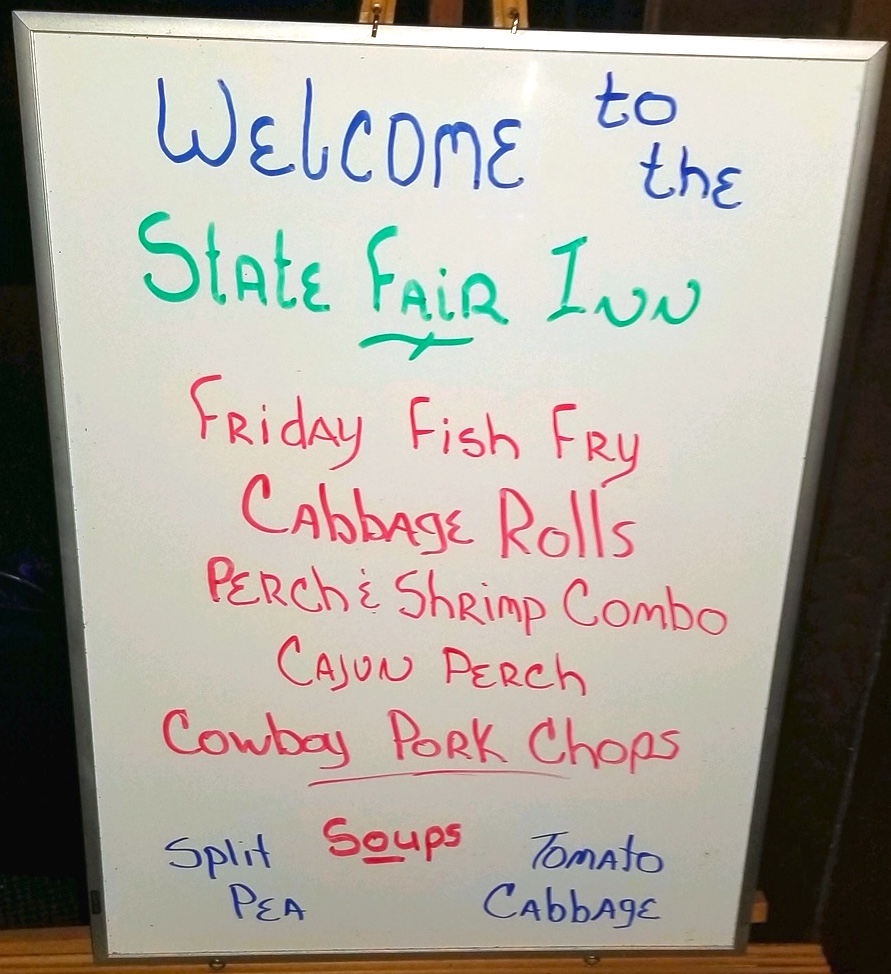 Welcome to the
State Fair Inn
Friday Fish Fry
Cabbage Rolls
Perch & Shrimp Combo
Cajun Perch
Cowboy Pork Chops
Soups
Split Pea
Tomato Cabbage